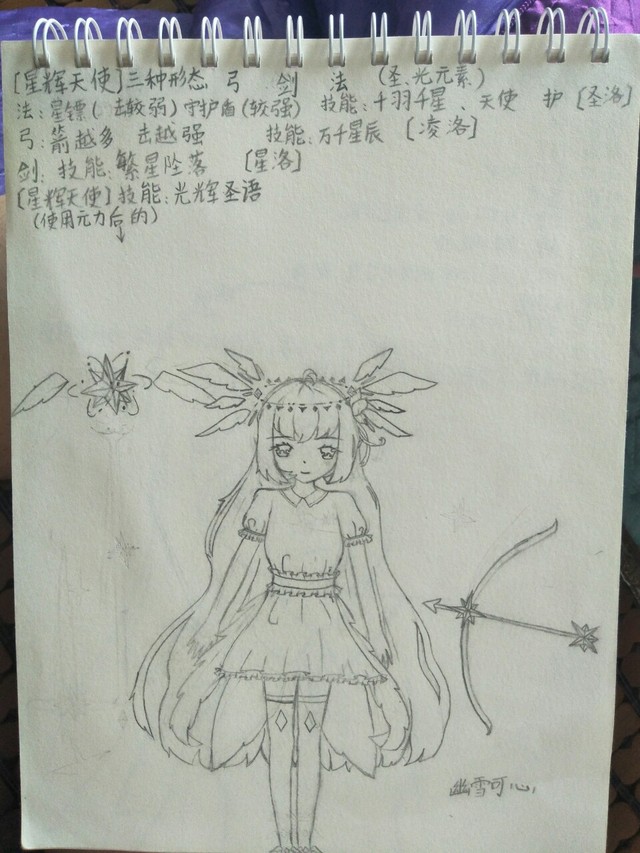 [星辉天使]三种形态 弓 剑 法 (圣、光元素)
法:星镖( 击较弱)守护盾(较强) 技能:十羽千星、天使 护 [圣洛]
弓:箭越多 击越强 技能:万千星辰 [凌洛]
剑: 技能:繁星坠落 [星洛]
[星辉天使]技能:光辉圣语
(使用元力后的)
幽雪可心